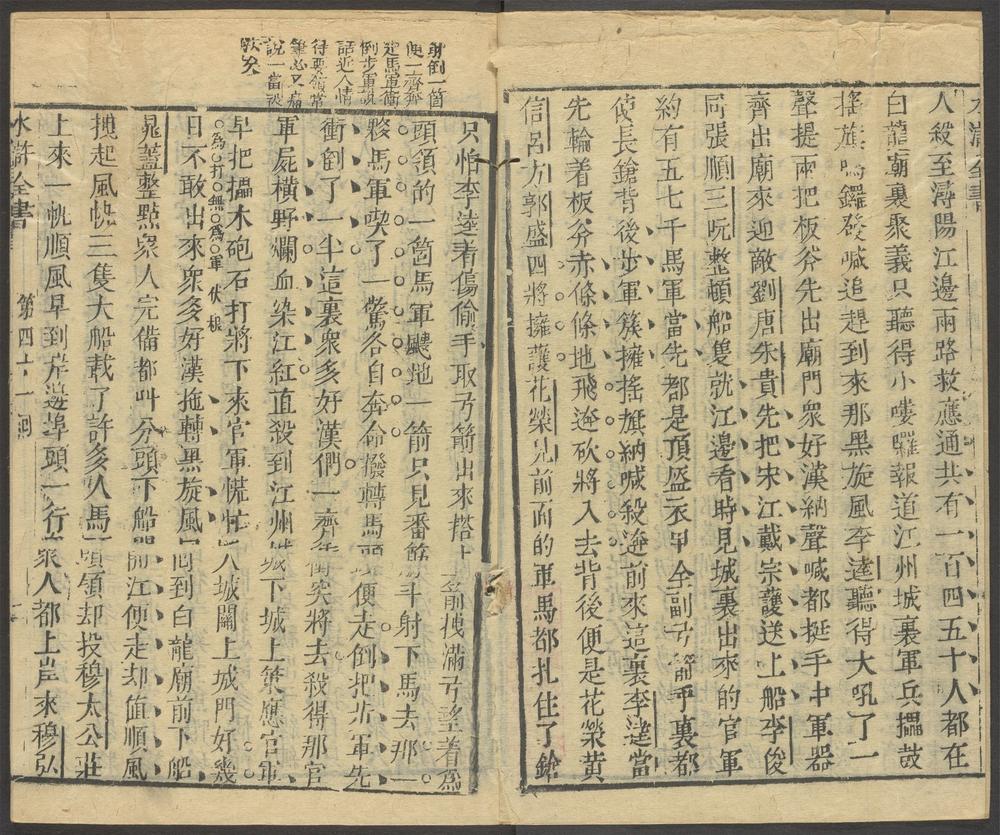 人殺至潯陽江邊兩路救應通共有一百四五十人都在
白龍廟裏聚義只聽得小嘍囉報道江州城裏軍兵擂鼓
搖旗鳴鑼發喊追趕到來那黑旋風李逵聽得大吼了一
聲提兩把板斧先出廟門衆好漢納聲喊都挺手中軍器
齊出廟來迎敵劉唐朱貴先把宋江戴宗護送上船李俊
同張順三阮整頓船隻就江邊看時見城裏出來的官軍
約有五七千馬軍當先都是頂盔衣甲全副弓箭手裏都
使長鎗背後步軍簇擁搖旗納喊殺迤前來這裏李逵當
先輪着板斧赤條條地飛迤砍將入去背後便是花榮黄
信呂方郭盛四將擁護花榮見前面的軍馬都扎住了鎗
射倒一箇
便一齊奔
走馬軍衝
倒步軍説
話近人情
得要領常
説一當被
只怕李逵着傷偷手取弓箭出來搭上箭拽滿弓望着爲
頭領的一箇馬軍颼地一箭只見番觔斗射下馬去那一
夥馬軍喫了一驚各自奔命撥轉馬頭便走倒把步軍先
衝倒了一半這裏衆多好漢們一齊衝突將去殺得那官
軍屍橫野爛血染江紅直殺到江州城下城上策應官軍
早把擂木砲石打將下來官軍慌忙入城關上城門好幾
爲打無爲軍伏根
日不敢出來衆多好漢拖轉黑旋風回到白龍廟前下船
晁蓋整點衆人完備都叫分頭下船開江便走却值順風
拽起風帆三隻大船載了許多人馬頭領却投穆太公莊
上來一帆順風早到岸邊埠頭一行衆人都上岸來穆弘
水滸全書
第四十一回